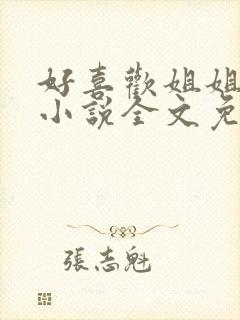 好喜歡姐姐
小說全文免
張志魁